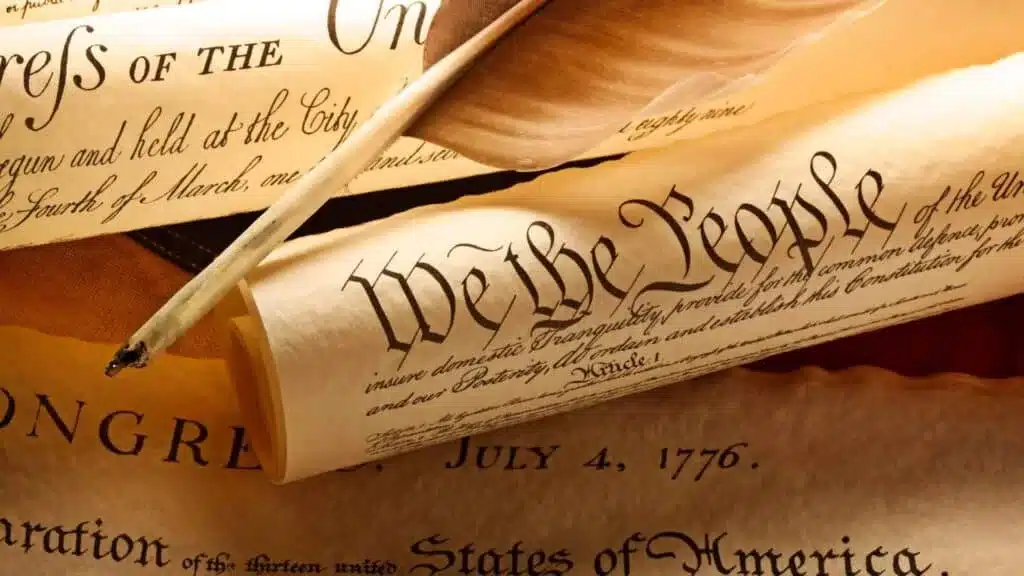 reſs OF THE Un
egun and held at the City
Fourth of March, one
eighty nine
We the People of the Un
insure domestic Tranquility, provide for the common defence, pro
and our Posterity, do ordain and establish this Constitution for the
Article 1
ONGRE S, JULY 4, 1776.
aration of the thirteen united States of America.